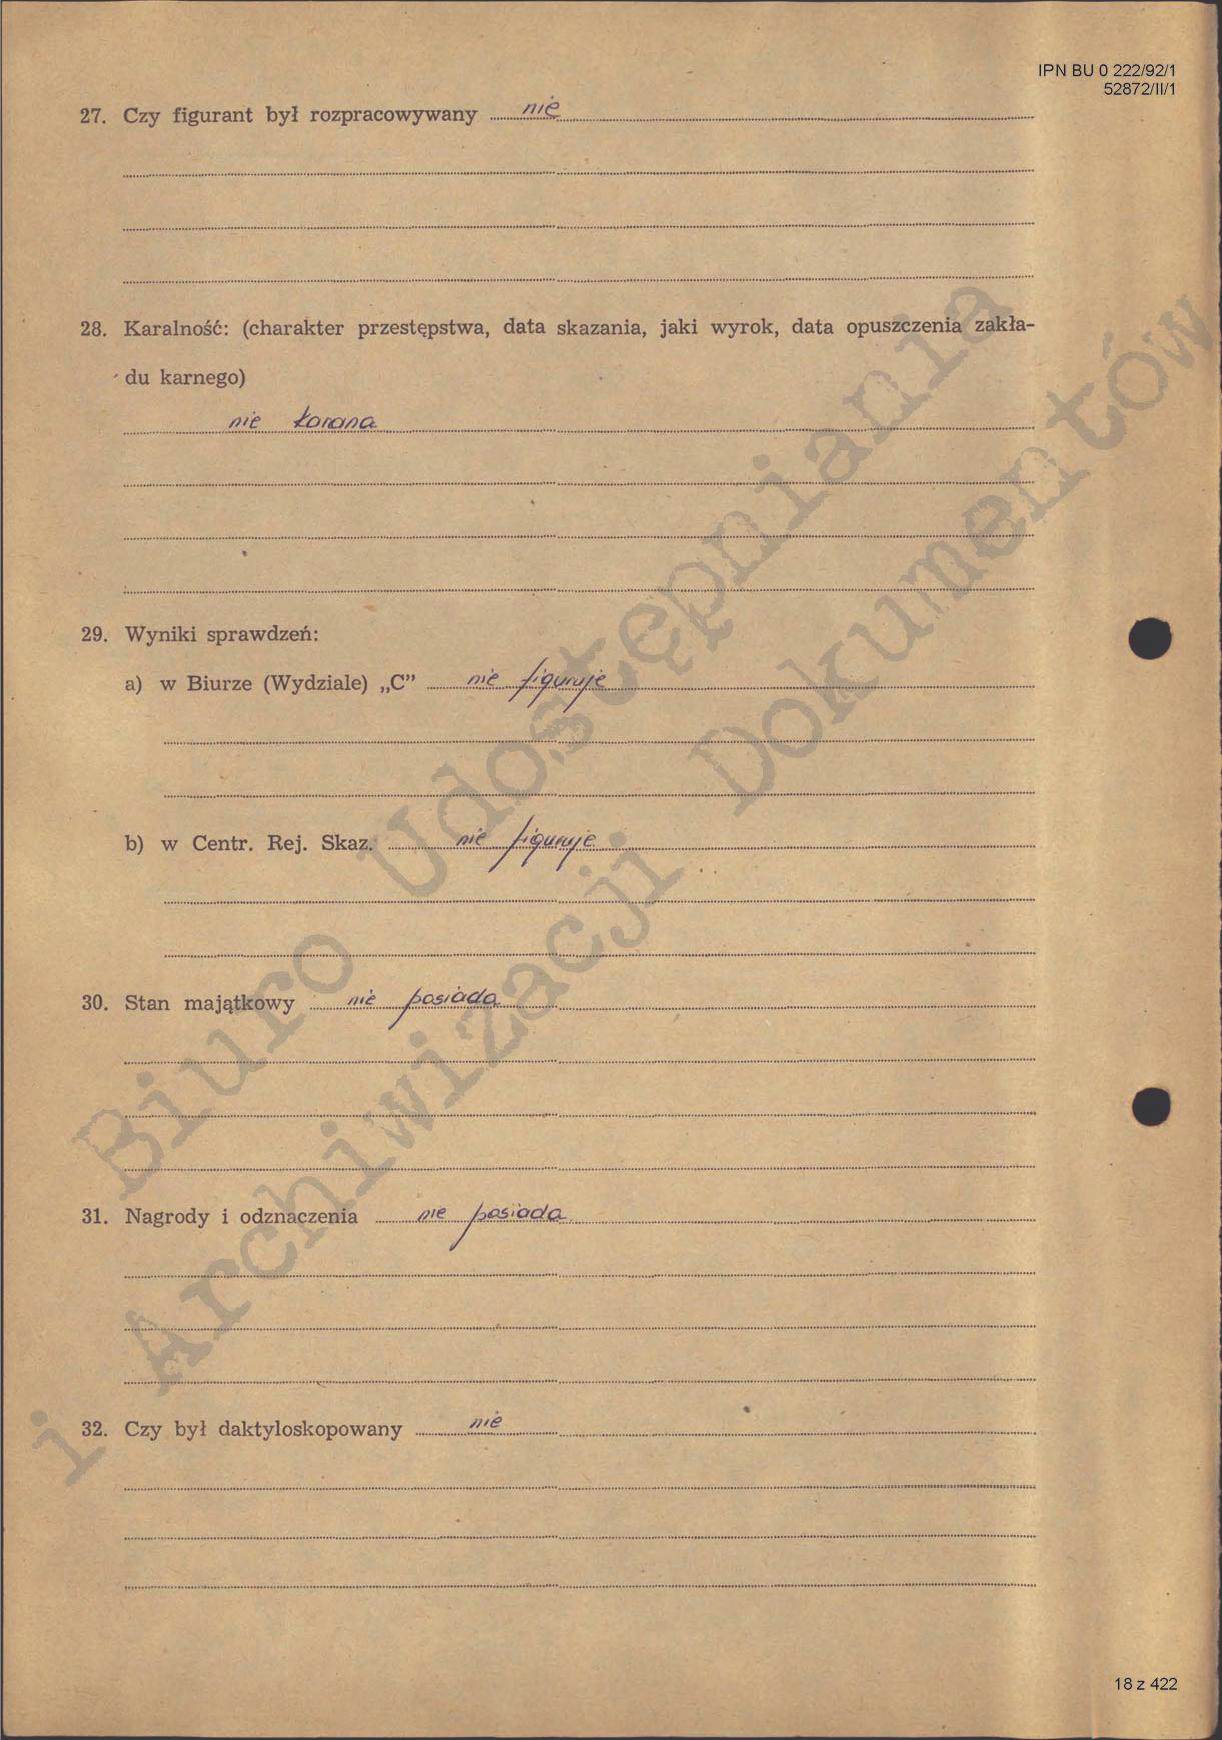 IPN BU 0 222/92/1
52872/II/1
27. Czy figurant był rozpracowywany nie
28. Karalność: (charakter przestępstwa, data skazania, jaki wyrok, data opuszczenia zakła-
du karnego)
nie karana
29. Wyniki sprawdzeń:
a) w Biurze (Wydziale) „C” nie figuruje
b) w Centr. Rej. Skaz. nie figuruje
30. Stan majątkowy nie posiada
31. Nagrody i odznaczenia nie posiada
32. Czy był daktyloskopowany nie
Biuro Udostępniania
i Archiwizacji Dokumentów
18 z 422